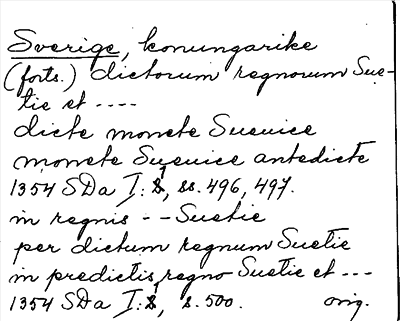 Sverige, konungarike
(forts.) dictorum regnorum Sue-
tie et ----
dicte monete Sueuice
monete Sueuice antedicte
1354 SDa I:1, ss. 496, 497.
in regnis -- Suetie
per dictum regnum Suetie
in predictis regno Suetie et ---
1354 SDa I:1, s. 500. orig.